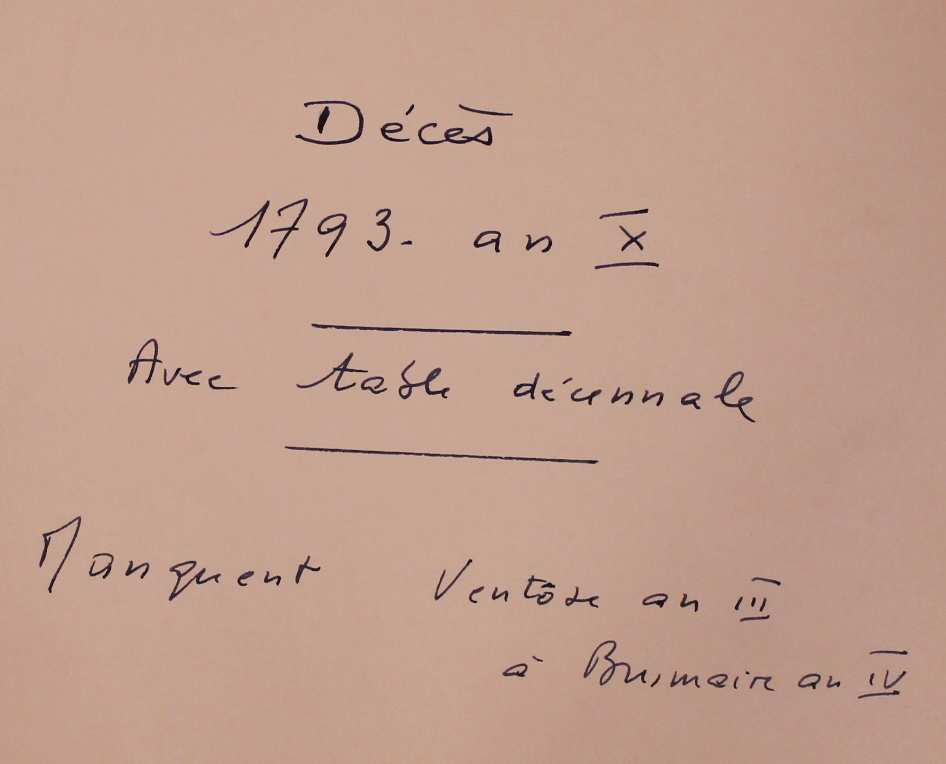 Décès
1793. an X
Avec table décennale
Manquent Ventôse an III
à Brumaire an IV